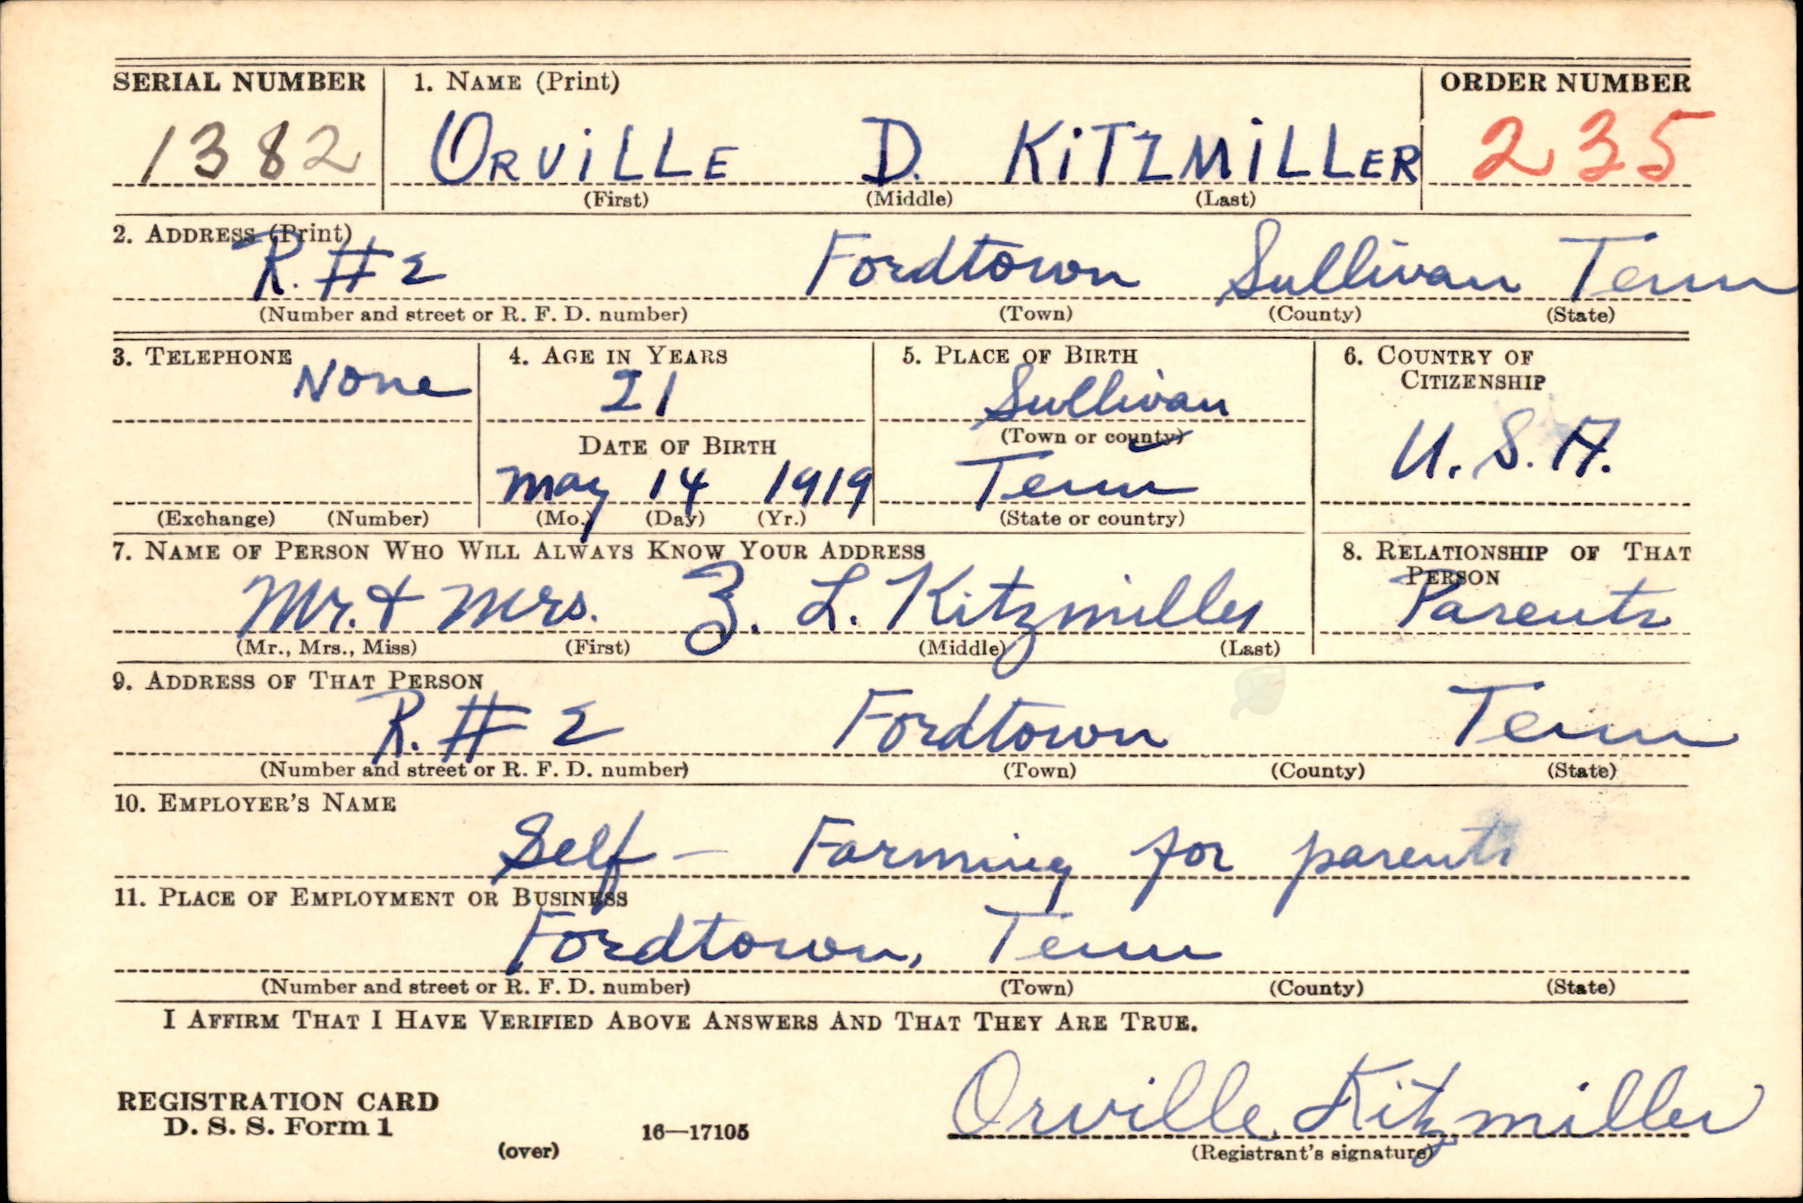 SERIAL NUMBER 1. NAME (Print) ORDER NUMBER
1382 ORViLLE D. KiTZMiLLER 235
(First) (Middle) (Last)
2. ADDRESS (Print)
R. # 2 Fordtown Sullivan Tenn
(Number and street or R. F. D. number) (Town) (County) (State)
3. TELEPHONE 4. AGE IN YEARS 5. PLACE OF BIRTH 6. COUNTRY OF
CITIZENSHIP
None 21 Sullivan
(Town or county)
DATE OF BIRTH U. S. A.
May 14 1919 Tenn
(Exchange) (Number) (Mo.) (Day) (Yr.) (State or country)
7. NAME OF PERSON WHO WILL ALWAYS KNOW YOUR ADDRESS 8. RELATIONSHIP OF THAT
PERSON
Mr. & Mrs. Z. L. Kitzmiller Parents
(Mr., Mrs., Miss) (First) (Middle) (Last)
9. ADDRESS OF THAT PERSON
R. # 2 Fordtown Tenn
(Number and street or R. F. D. number) (Town) (County) (State)
10. EMPLOYER'S NAME
Self — Farming for parents
11. PLACE OF EMPLOYMENT OR BUSINESS
Fordtown, Tenn
(Number and street or R. F. D. number) (Town) (County) (State)
I AFFIRM THAT I HAVE VERIFIED ABOVE ANSWERS AND THAT THEY ARE TRUE.
Orville Kitzmiller
REGISTRATION CARD
D. S. S. Form 1
(over) 16—17105 (Registrant's signature)